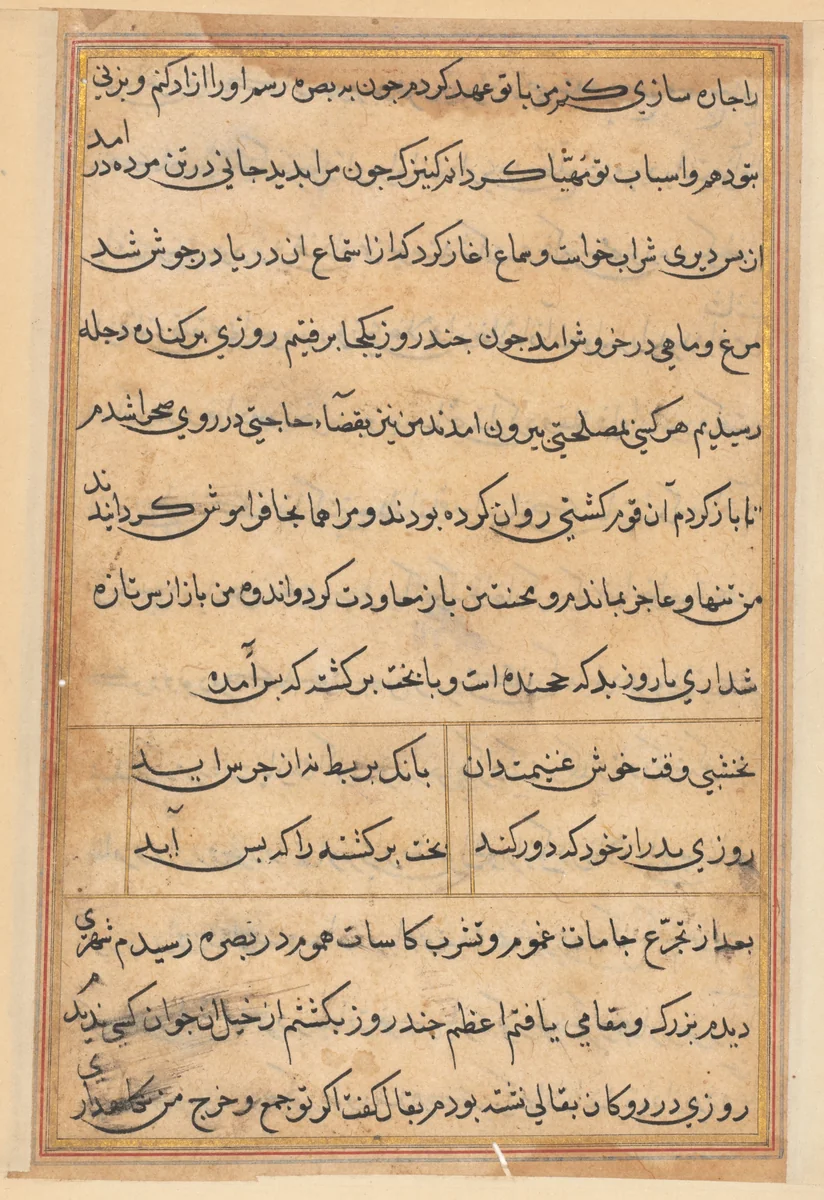 را چاره سازی کنم من با تو عهد کردم جون به بصره رسم او را ازاد کنم و بزنی
بتو دهم و اسباب تو مُهیّا کردانم کنیزک جون مرا بدید جانی در تن مرده در امد
از بس دیری شراب خواست و سماع اغاز کرد که از استماع ان دریا در جوش شد
مرغ و ماهی در خروش امد جون جند روز یکجا برفتیم روزی بر کناره دجله
رسیدیم هر کسی بمصلحتی بیرون امدند من نیز بقضآء حاجتی در روی صحرا شدم
تا باز کردم آن قوم کشتی روان کرده بودند و مرا هما بخا فراموش کردانیدند
من تنها و عاجز بماندم و محنت من باز معاودت کرد و اندوه من باز از سر تازه
شد اری با روز بد که است و با بخت بر کشته که بس آمده
نخشبی وقت خوش غنیمت دان بانک بربط نه از جرس اید
روزی بد را از خود که دور کند بخت بر کشته را که بس آید
بعد از تجرّع جامات غموم و تشرب کاسات هموم در بصره رسیدم شهری
دیدم بزرک و مقامی یافتم اعظم جند روز بکشتم از خیل ان جوان کسی ندیدم
روزی در دوکان بقالی نشته بودم بقال کفت اکر تو جمع و خرج من نکاهداری